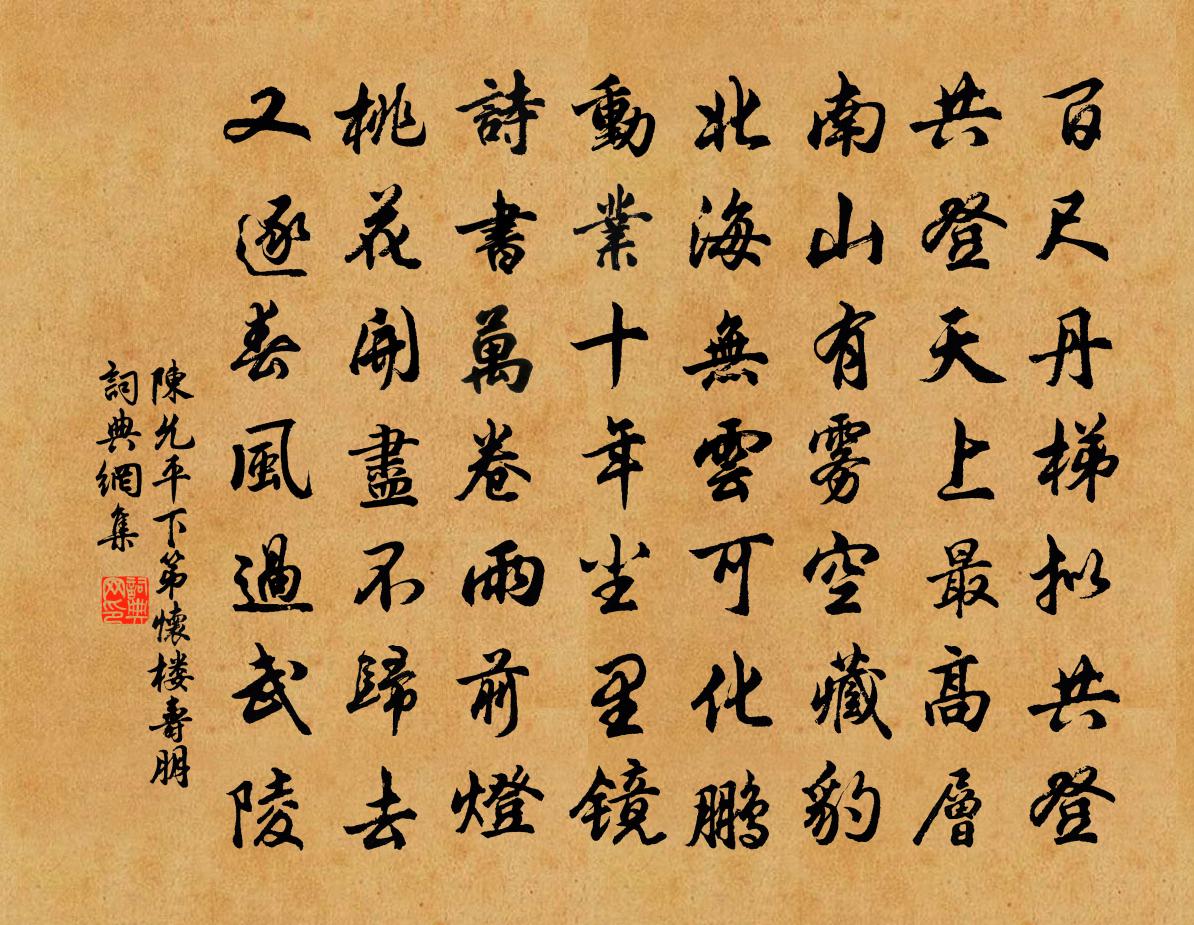 百尺丹梯拟共登
共登天上最高層
南山有雾空藏豹
北海無雲可化鹏
動業十年尘里镜
詩書萬卷雨前燈
桃花開盡不歸去
又逐春風過武陵
陳允平下第懷楼壽朋
詞典網集
詞典
网印